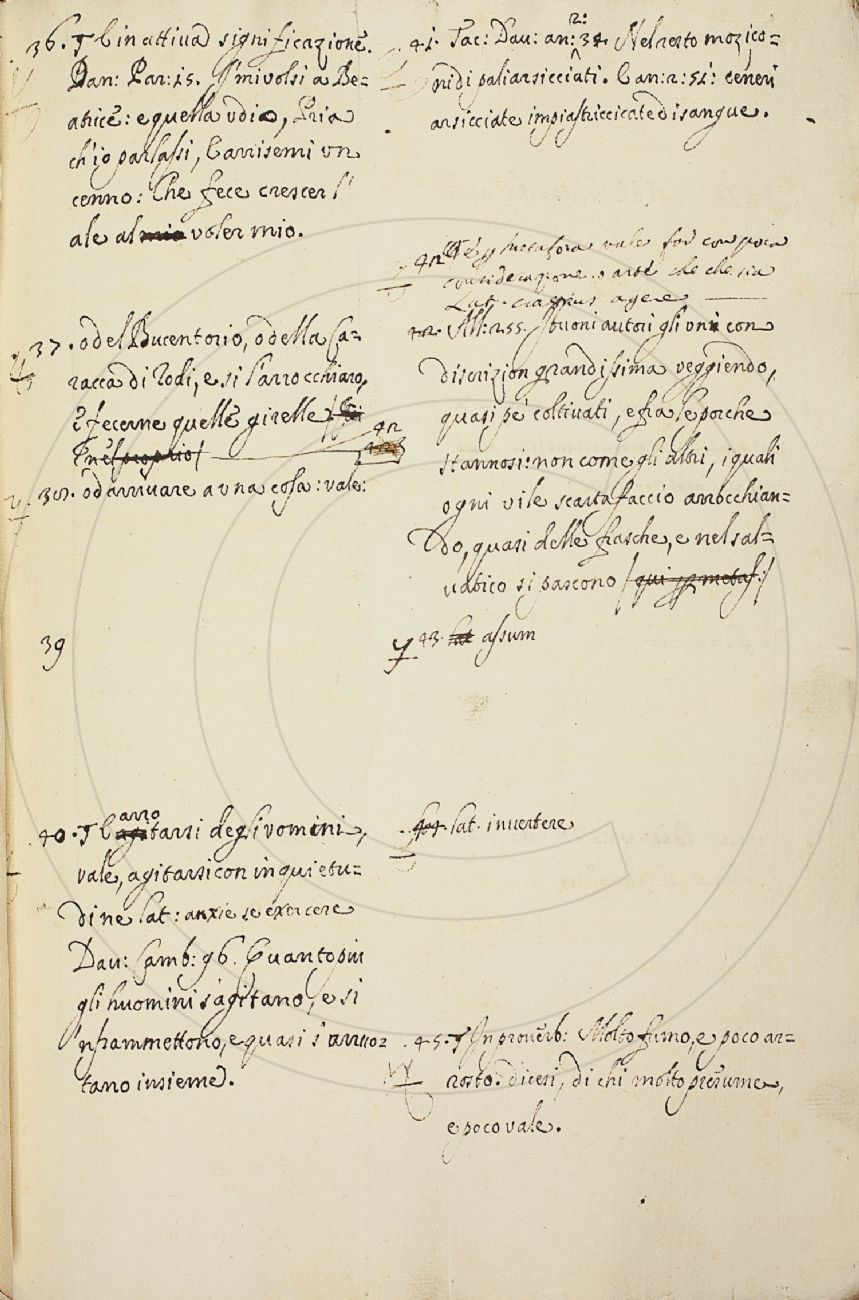 36. ¶ E in attiua significazione.
Dan: Par: 15. I' mi volsi a Be=
atrice: e quella vdio, Pria
ch'io parlassi, E arrisemi vn
cenno: Che fece crescer l'
ale al mio voler mio.
37. o del Bucentorio, o della Ca=
racca di Rodi, e si s'arrocchiaro,
E fecerne quelle girelle
E nel proprio
42
38. od arriuare a vna cosa: vale:
39
40. ¶ E agitarsi degli vomini,
arro
vale, agitarsi con inquietu=
dine Lat: anxie se exercere
Dau: Camb: 96. Quanto piu
gli huomini s'agitano, e si
'nframmettono, e quasi s'arro
tano insieme.
2:
41. Tac: Dau: an: 34. Nel resto mozico=
ni di pali arsicciati. E an: 2: 51: ceneri
arsicciate impiastriccicate di sangue.
42 ¶ E per metafora vale far con poca
considerazione o arte che che sia
Lat. crassius agere
42. All: 255. I buoni autori gli uni con
discrizion grandissima veggiendo,
quasi pe' coltiuati, e fra le porche
stannosi: non come gli altri, i quali
ogni vile scartafaccio arrocchian=
do, quasi delle frasche, e nel sal=
uatico si pascono / qui per metaf: /
43. Lat assum
44. Lat. inuertere
45. ¶ In prouerb: Molto fumo, e poco ar=
rosto. dicesi, di chi molto presume,
e poco vale.